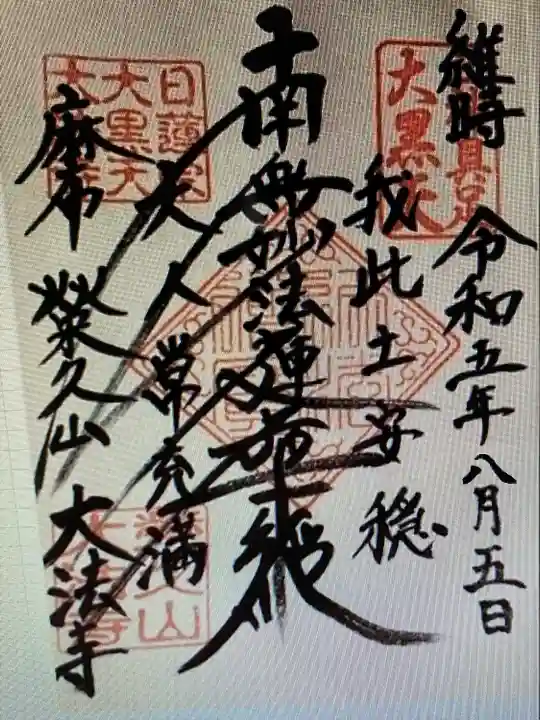 維時 令和五年八月五日
我此土安穏
南無妙法蓮華経
天人常充満
麻布 榮久山 大法寺
大黒天
日蓮宗
大黒天
大法寺